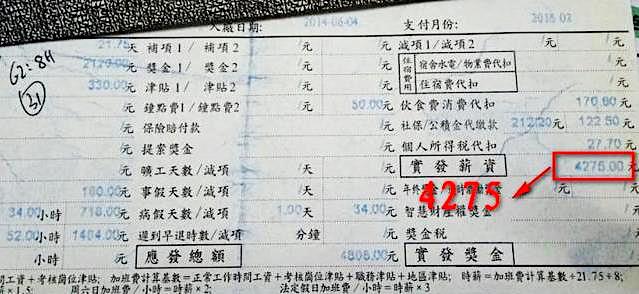 入廠日期: 2014-06-04 支付月份:
G2:84
31
21.75 天 補項1/ 補項2 /元 減項1/減項2 / /元
2120.00 元 獎金1/ 獎金2 /元 住宿費用 宿舍水電/物業費代扣 /元
330.00 元 津貼1/ 津貼2 /元 住宿費代扣 /元
/元 鐘點費1/鐘點費2 50.00 /元 伙食費消費代扣 170.60 /元
/元 保險賠付款 /元 社保/公積金代繳款 212|20 元 122.50 /元
/元 提案獎金 /元 個人所得稅代扣 27.70 /元
/元 曠工天數/減項 /天 /元 實發薪資 4275.00 /元
/元 事假天數/減項 /天 /元 4275
34.00 小時 718.00 /元 病假天數/減項 1.00 /天 34.00 /元 智慧財產權獎金 /元
52.00 小時 1464.00 /元 遲到早退時數/減項 分鐘 /元 獎金稅 /元
小時 /元 應發總額 4808.00 /元 實發獎金 /元
工資+考核崗位津貼; 加班費計算基數=正常工作時間工資+考核崗位津貼+職務津貼+地區津貼; 時薪=加班費計算基數÷21.75÷8;
×1.5; 周六日加班費/小時=時薪×2; 法定假日加班費/小時=時薪×3